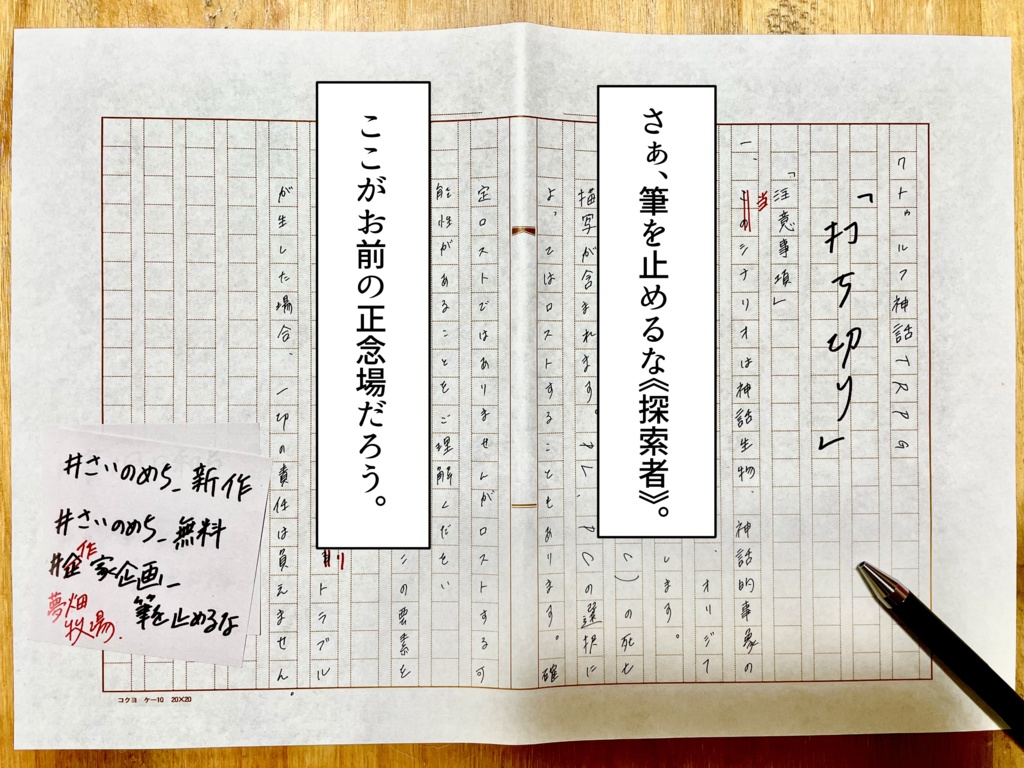 クトゥルフ神話TRPG
「打ち切り」
「注意事項」
一、当シナリオは神話生物、神話的事象の
オリジ
します。
の死も
描写が含まれます。PL、PCの選択に
よってはロストすることもあります。確
定ロストではありませんがロストする可
能性があることをご理解ください
の要素を
トラブル
が生した場合、一切の責任は負えません。
さぁ、筆を止めるな《探索者》。
ここがお前の正念場だろう。
#さいのめち_新作
#さいのめち_無料
#作家企画_
筆を止めるな
夢畑
牧場.
コクヨ ケー10 20×20